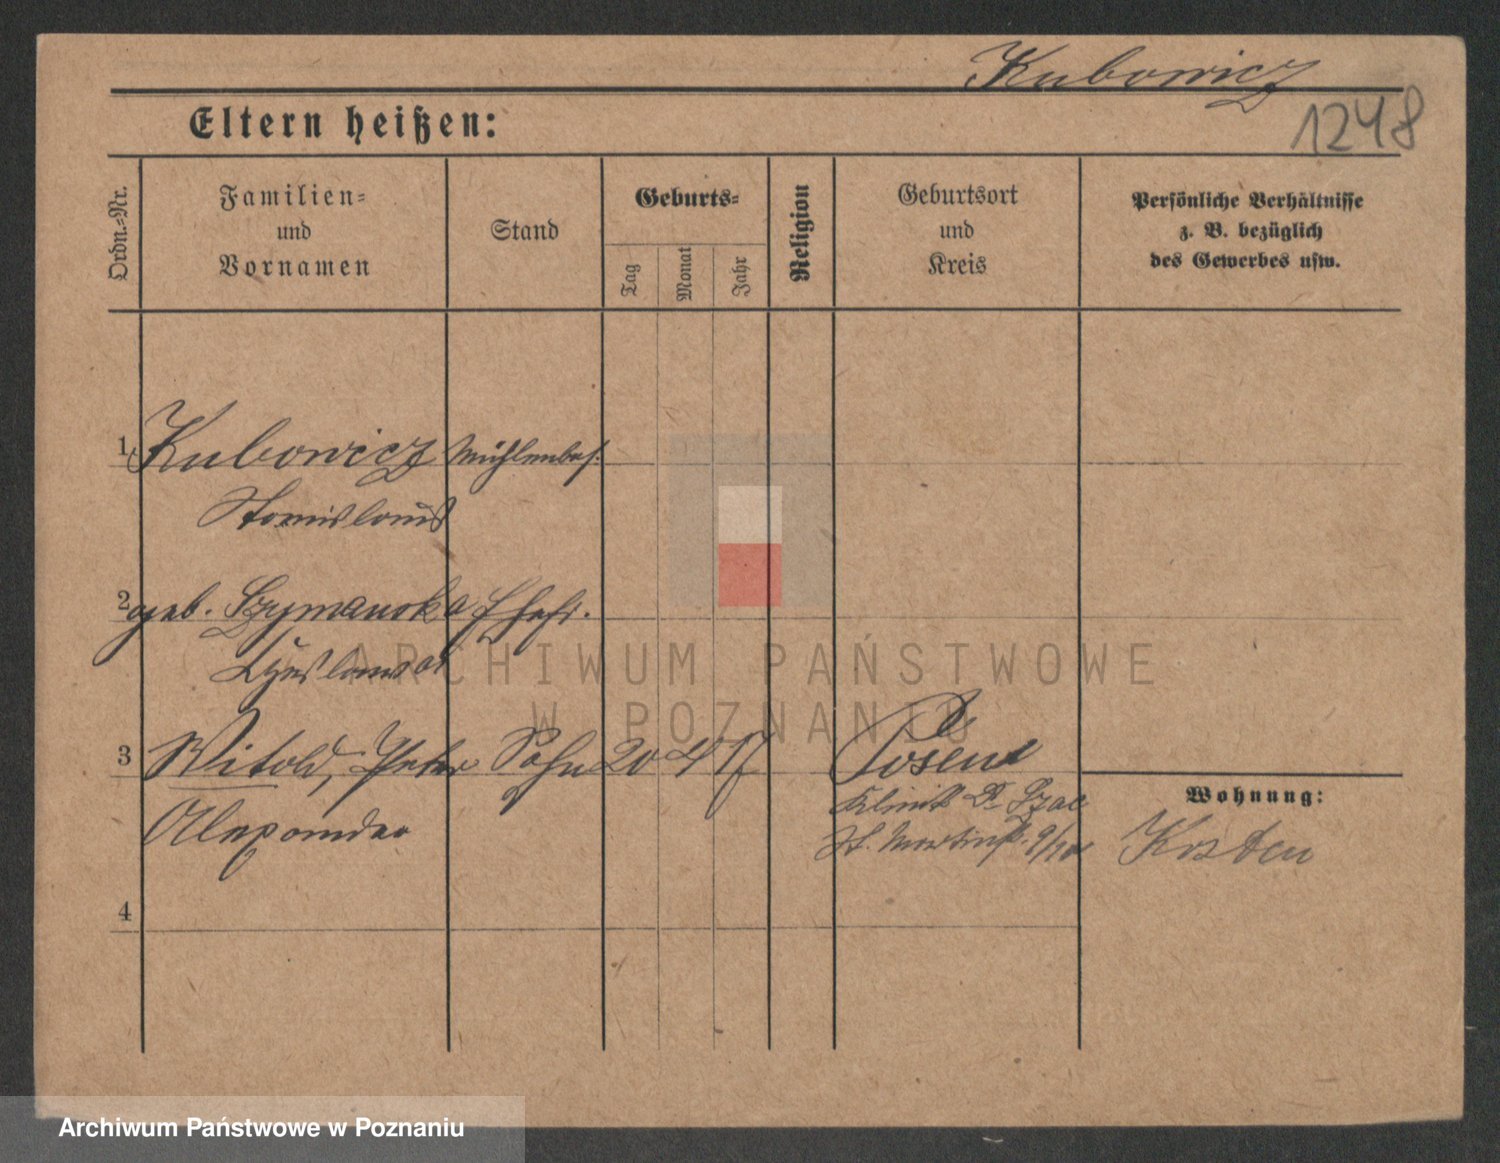 Kubowicz
1248
Eltern heißen:
Ordn.-Nr.
Familien-
und
Vornamen
Stand
Geburts-
Tag
Monat
Jahr
Religion
Geburtsort
und
Kreis
Persönliche Verhältnisse
z. B. bezüglich
des Gewerbes usw.
1 Kubowicz Mühlenbes.
Stanislaus
2 geb. Szymanska Ehefr.
3 Witold, Peter Sohn 20 4 17 Posen
Alexander
Klinik Dr
St. Martinstr. 9/10
Wohnung:
Kosten
4
ARCHIWUM PAŃSTWOWE
W POZNANIU
Archiwum Państwowe w Poznaniu